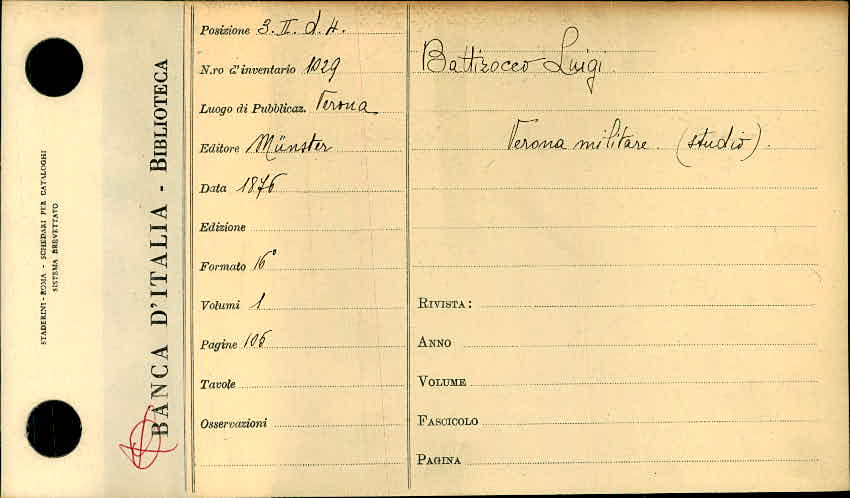 STADERINI-ROMA - SCHEDARI PER CATALOGHI
SISTEMA BREVETTATO
BANCA D'ITALIA - BIBLIOTECA
Posizione 3. II. d. 4.
N.ro d'inventario 1029
Luogo di Pubblicaz. Verona
Editore Münster
Data 1876
Edizione
Formato 16°
Volumi 1
Pagine 105
Tavole
Osservazioni
Battizocco Luigi.
Verona militare. (studio).
RIVISTA:
ANNO
VOLUME
FASCICOLO
PAGINA